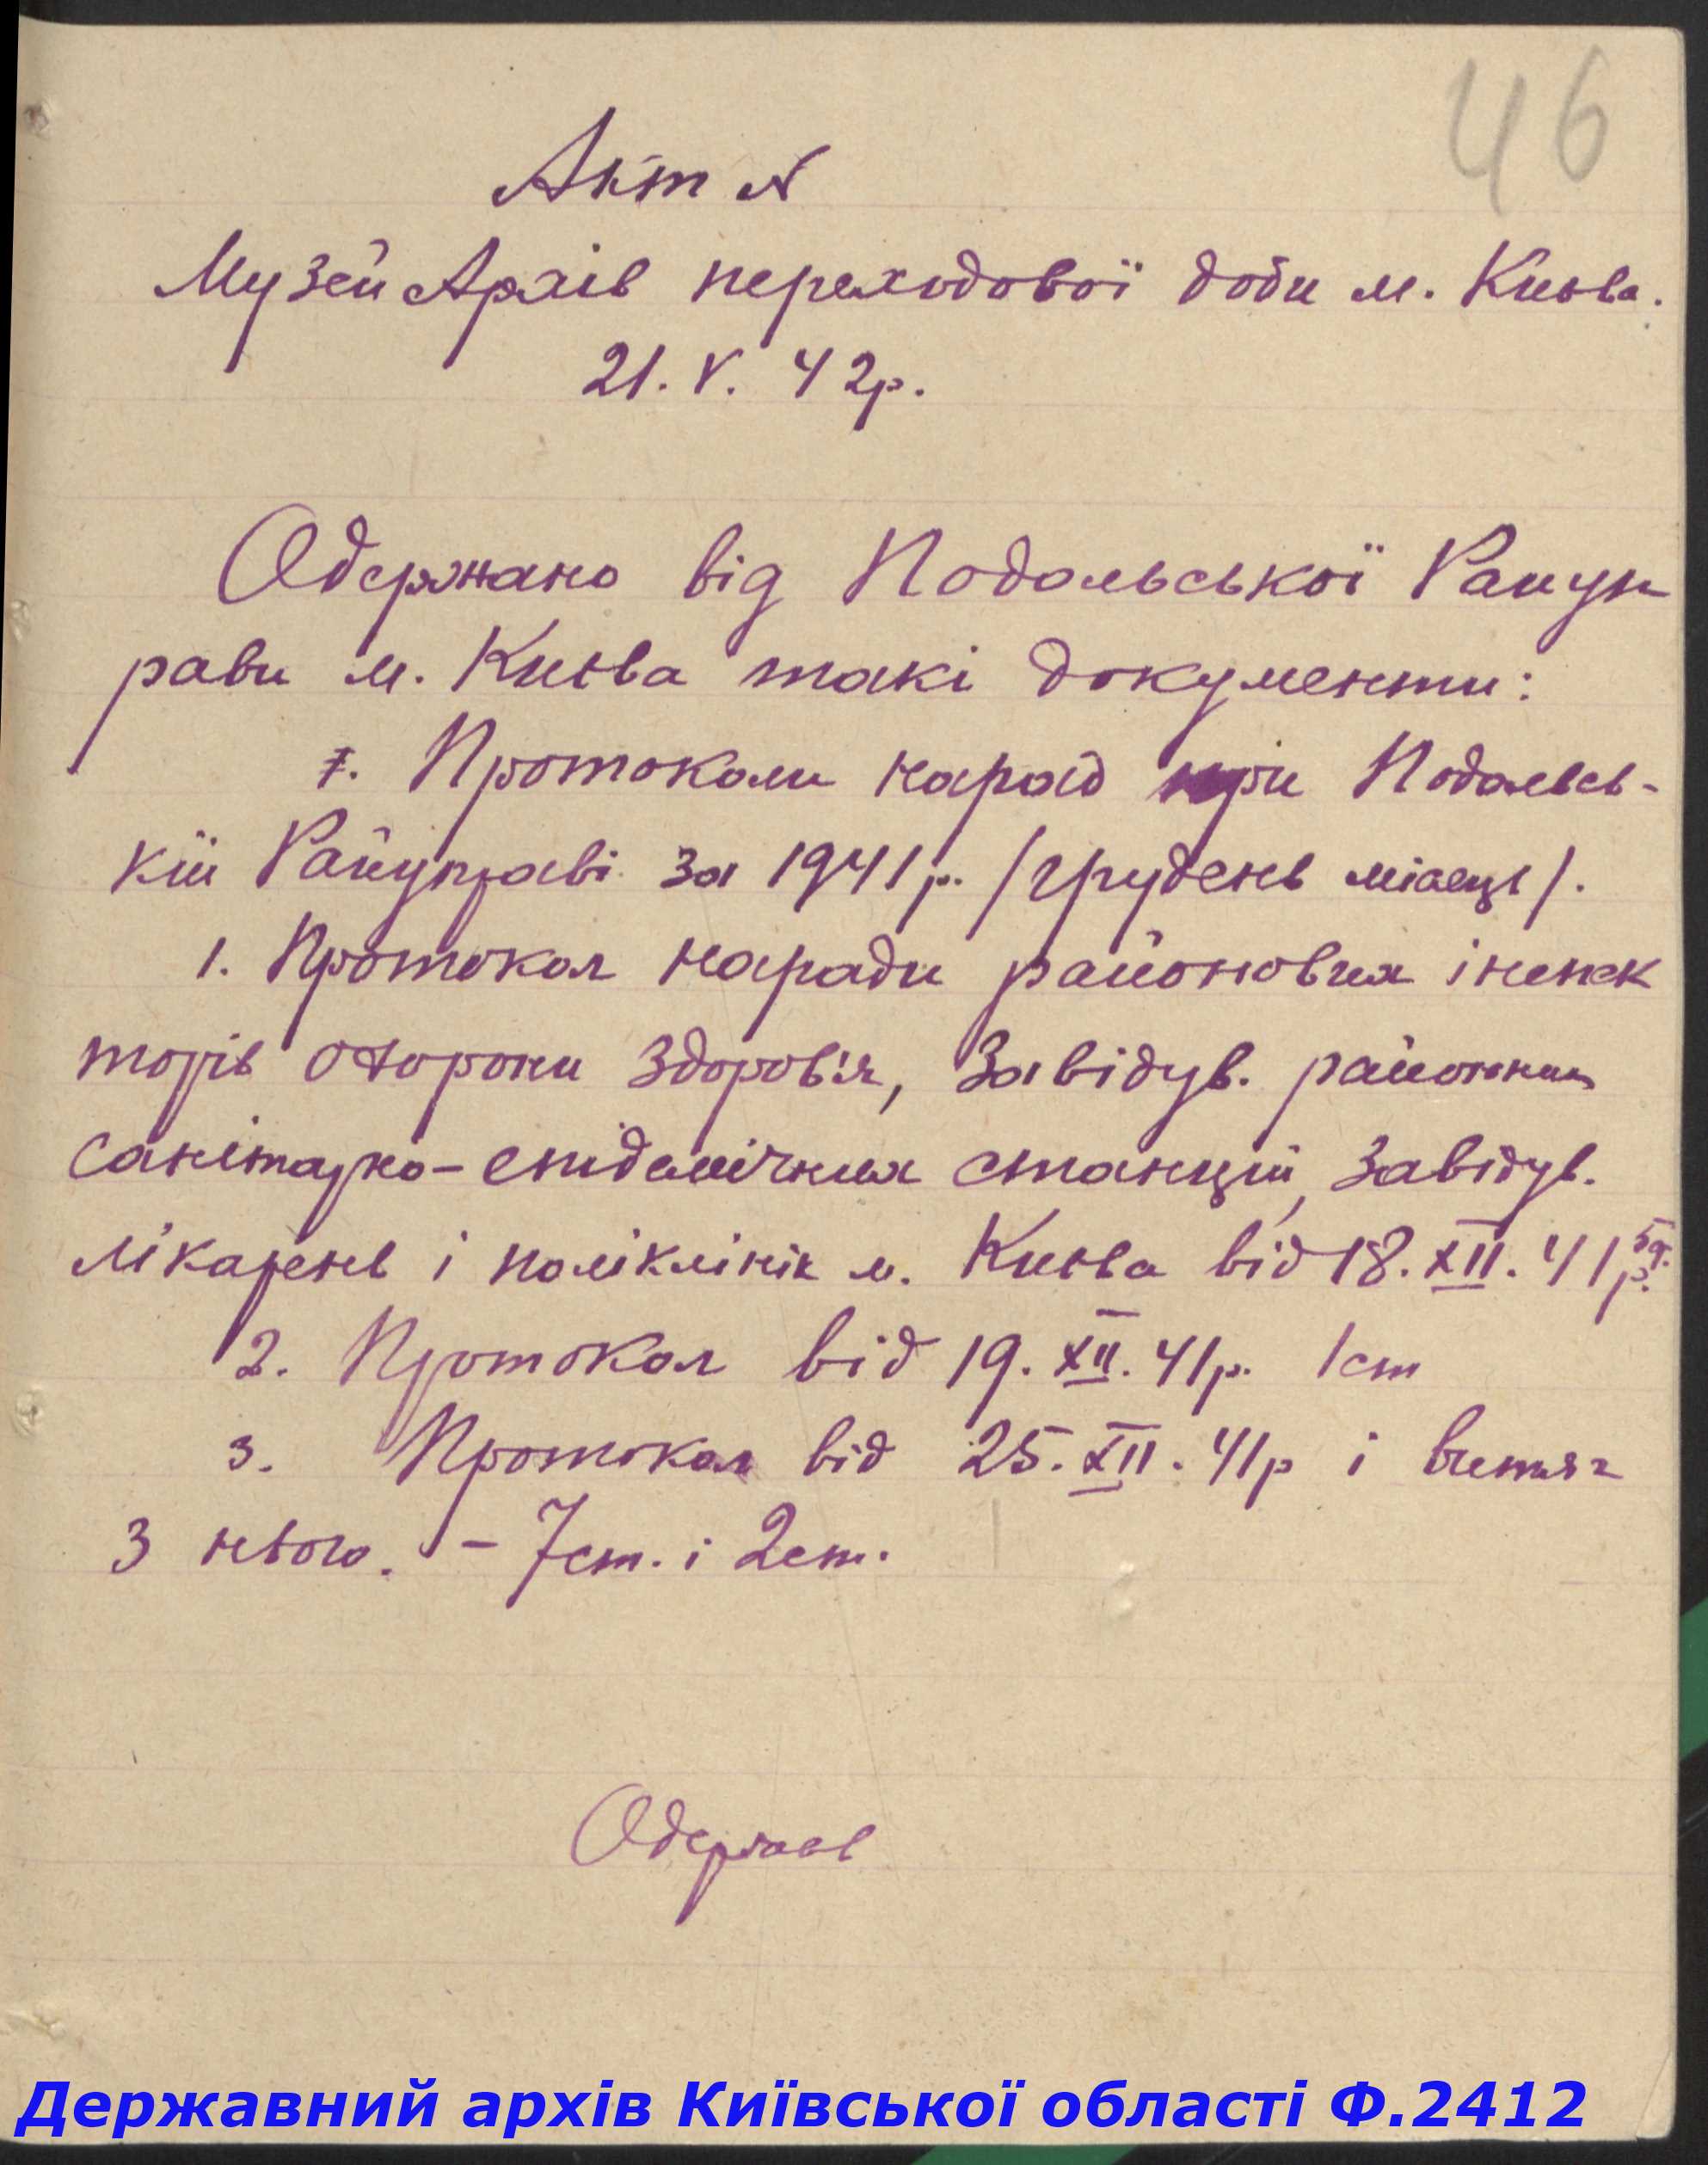 46
Акт N
Музей Архів переходової доби м. Києва.
21. V. 42р.
Одержано від Подольської Райуп
рави м. Києва такі документи:
I. Протоколи нарад при Подольсь-
кій Райуправі за 1941р. /грудень місяць/.
1. Протокол наради районових інспек
торів охорони здоров'я, Завідув. районних
санітарно-епідемічних станцій, Завідув.
лікарень і поліклінік м. Києва від 18. XII. 41р.
2. Протокол від 19. XII. 41р. 1ст
3. Протокол від 25. XII. 41р і витяг
З нього. – 7ст. і 2ст.
Одержав
Державний архів Київської області Ф.2412